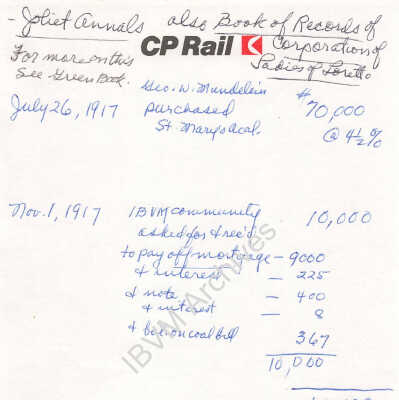 - Joliet Annals also Book of Records of
CP Rail Corporation of
Ladies of Loretto
For more on this
See Green Book.
Geo. W. Mundelein $
July 26, 1917 purchased 70,000
St. Mary's Acad. @ 4½%
Nov. 1, 1917 IBVM community 10,000
asked for & rec'd
to pay off mortgage - 9000
& interest - 225
& note - 400
& interest - 8
& bal. on coal bill 367
10,000
IBVM Archives